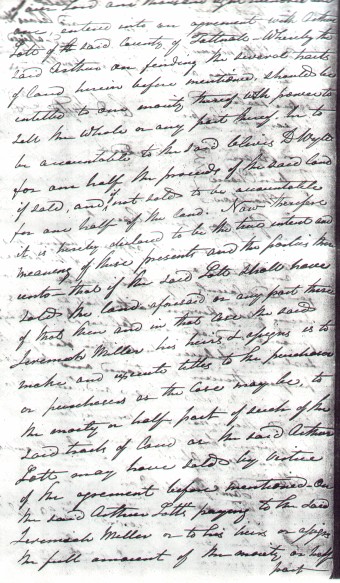 enters into an agreement with Arthur
Lott of the said County of Tattnall Whereby the
said Arthur on finding the several tracts
of Land herein before mentioned, should be
entitled to one moity thereof with power to
sell the whole or any part thereof. on to
be accountable to the said
for one half the proceeds of the said land
if sold, and if not sold to be accountable
for one half of the land. Now therefore
it is hereby declared to be the true intent and
meaning of these presents and the parties there
unto that if the said Lott shall have
sold the land aforesaid or any part there
of that then and in that case the said
Jeremiah Miller his heirs & assigns is to
make and execute titles to the purchaser
or purchasers as the case may be, to
the moity or half part of such of the
said tracts of land as the said Arthur
Lott may have sold by virtue
of the agreement before mentioned on
the said Arthur Lott paying to the said
Jeremiah Miller or to his heirs or assigns
the full amount of the moity or half
part